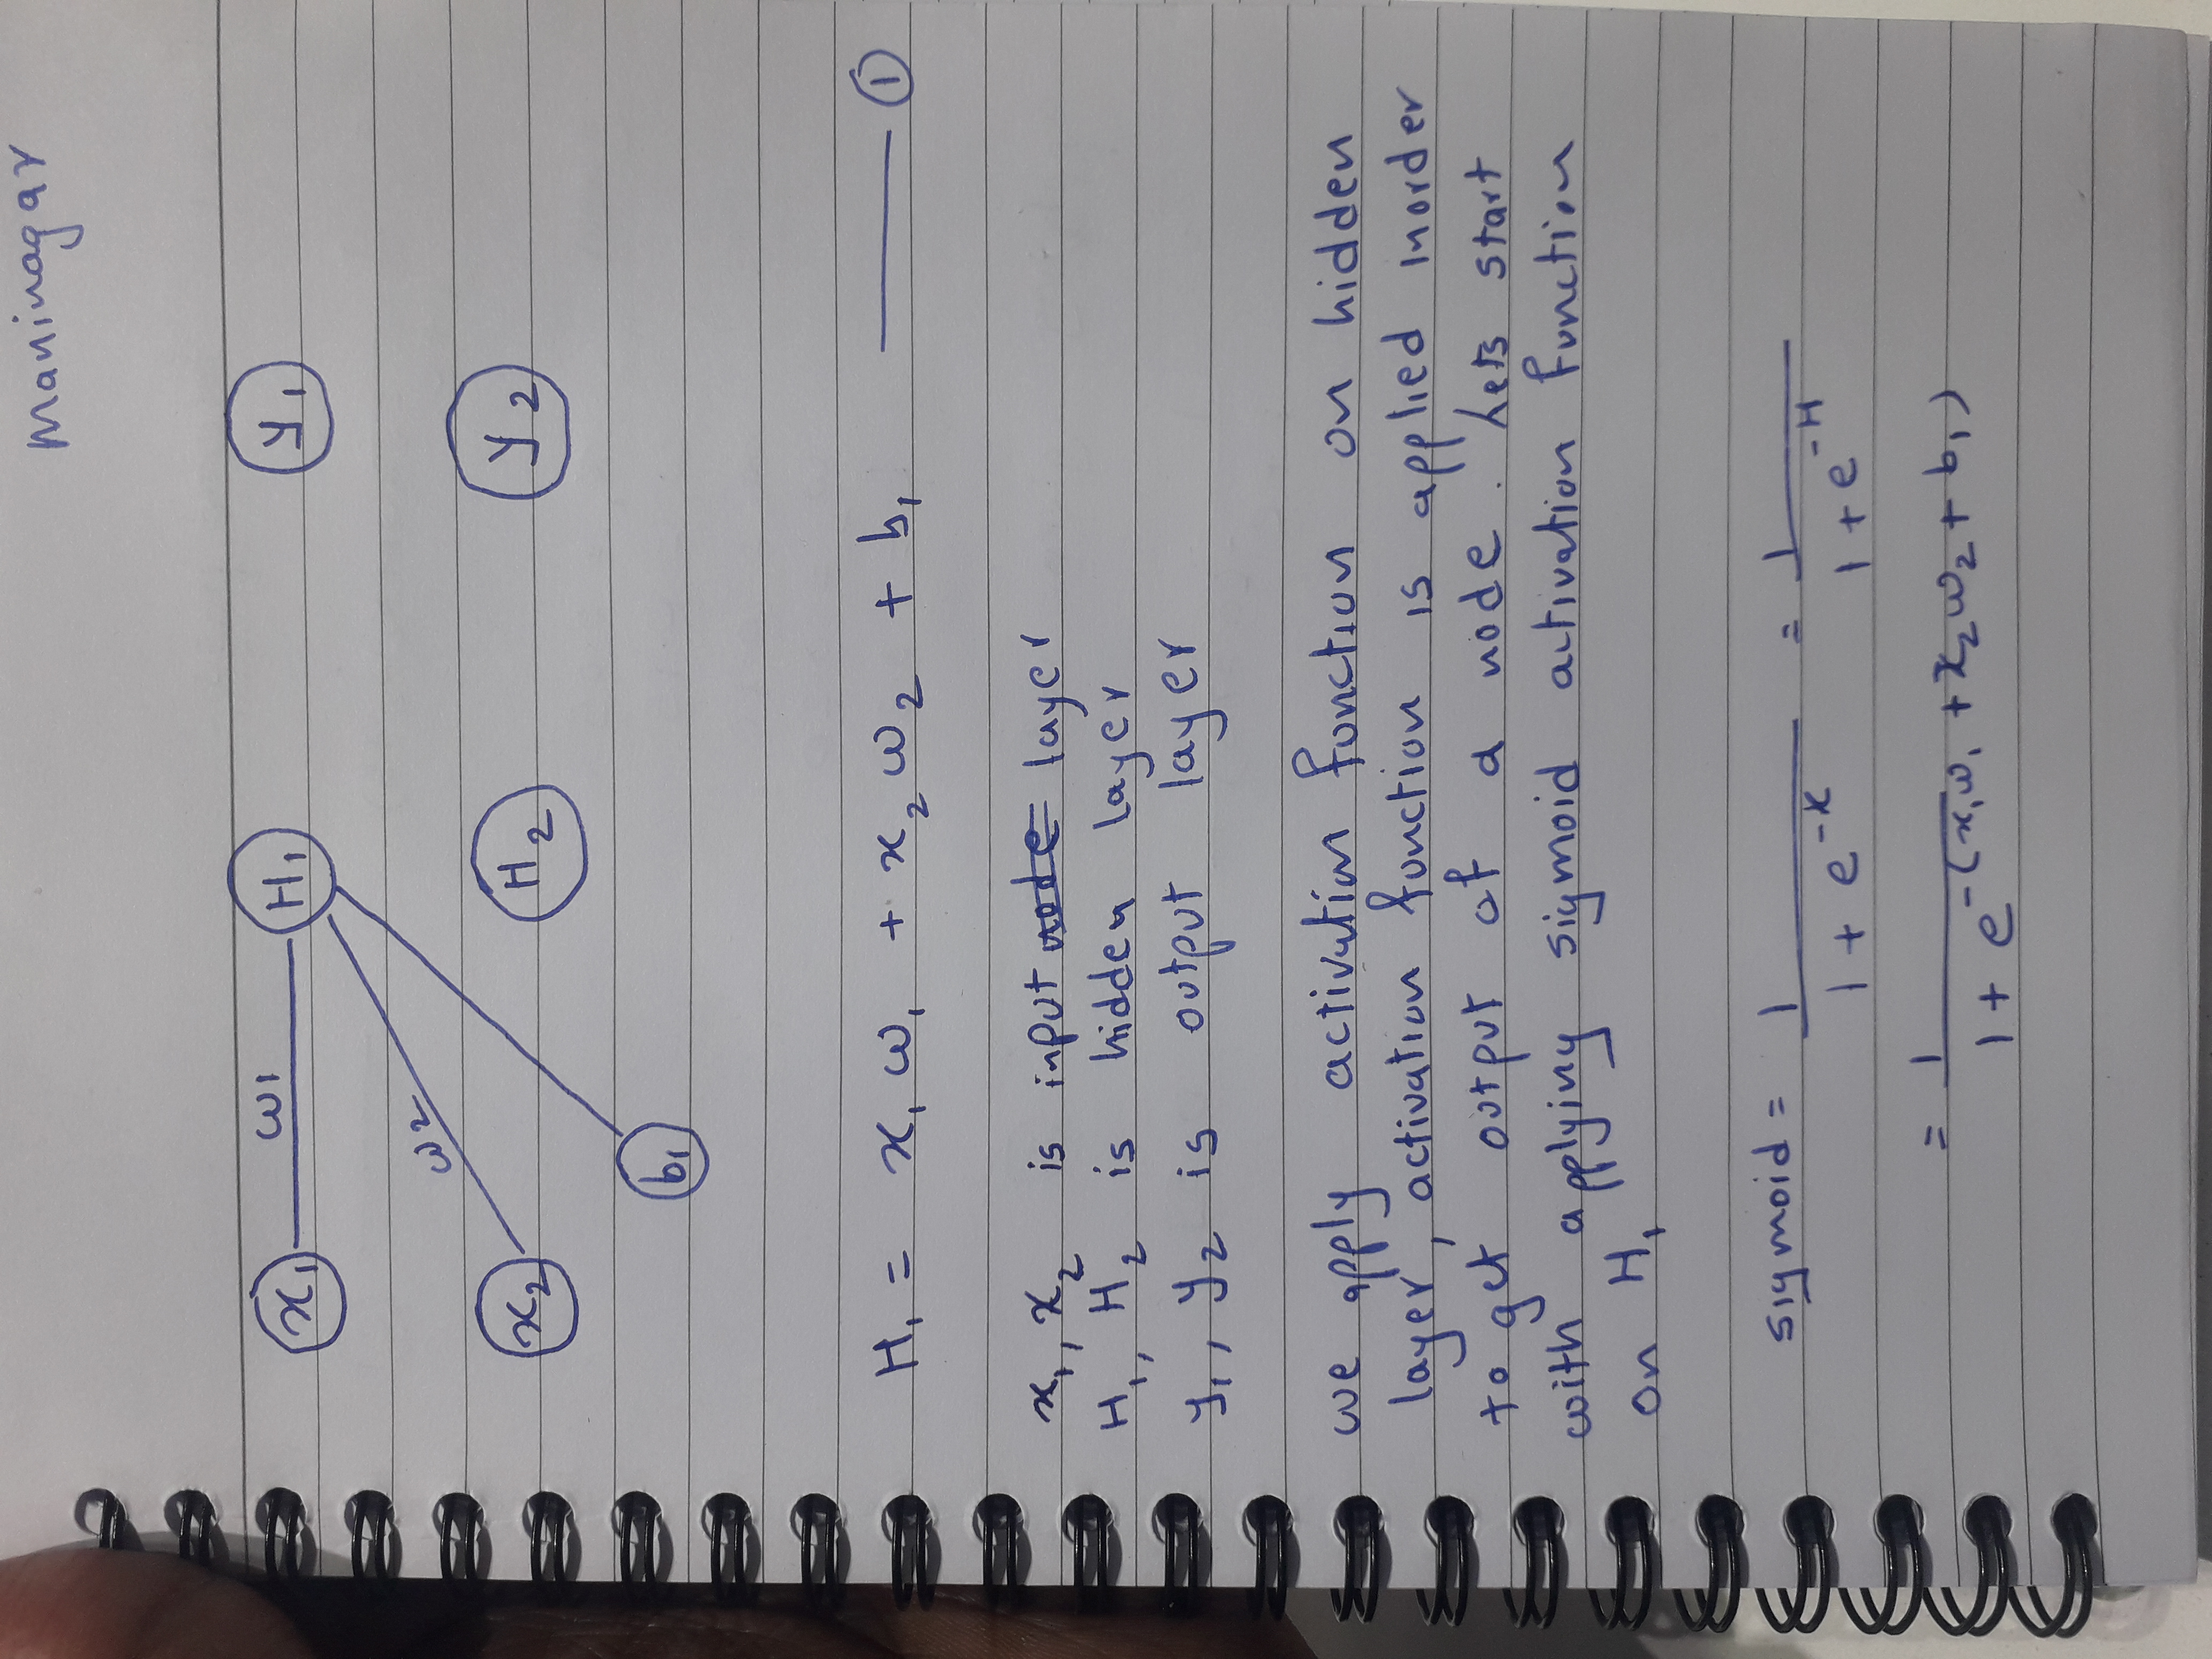 Maninagar
x₁ ω1 H₁ y₁
ω2
x₂ H₂ y₂
b₁
H₁ = x₁ ω₁ + x₂ ω₂ + b₁ ——— ①
x₁, x₂ is input ~~node~~ layer
H₁, H₂ is hidden layer
y₁, y₂ is output layer
we apply activation function on hidden
layer, activation function is applied inorder
to get output of a node. Lets start
with applying sigmoid activation function
on H₁
sigmoid = 1 / (1 + e^-x) = 1 / (1 + e^-H)
= 1 / (1 + e^-(x₁ω₁ + x₂ω₂ + b₁))